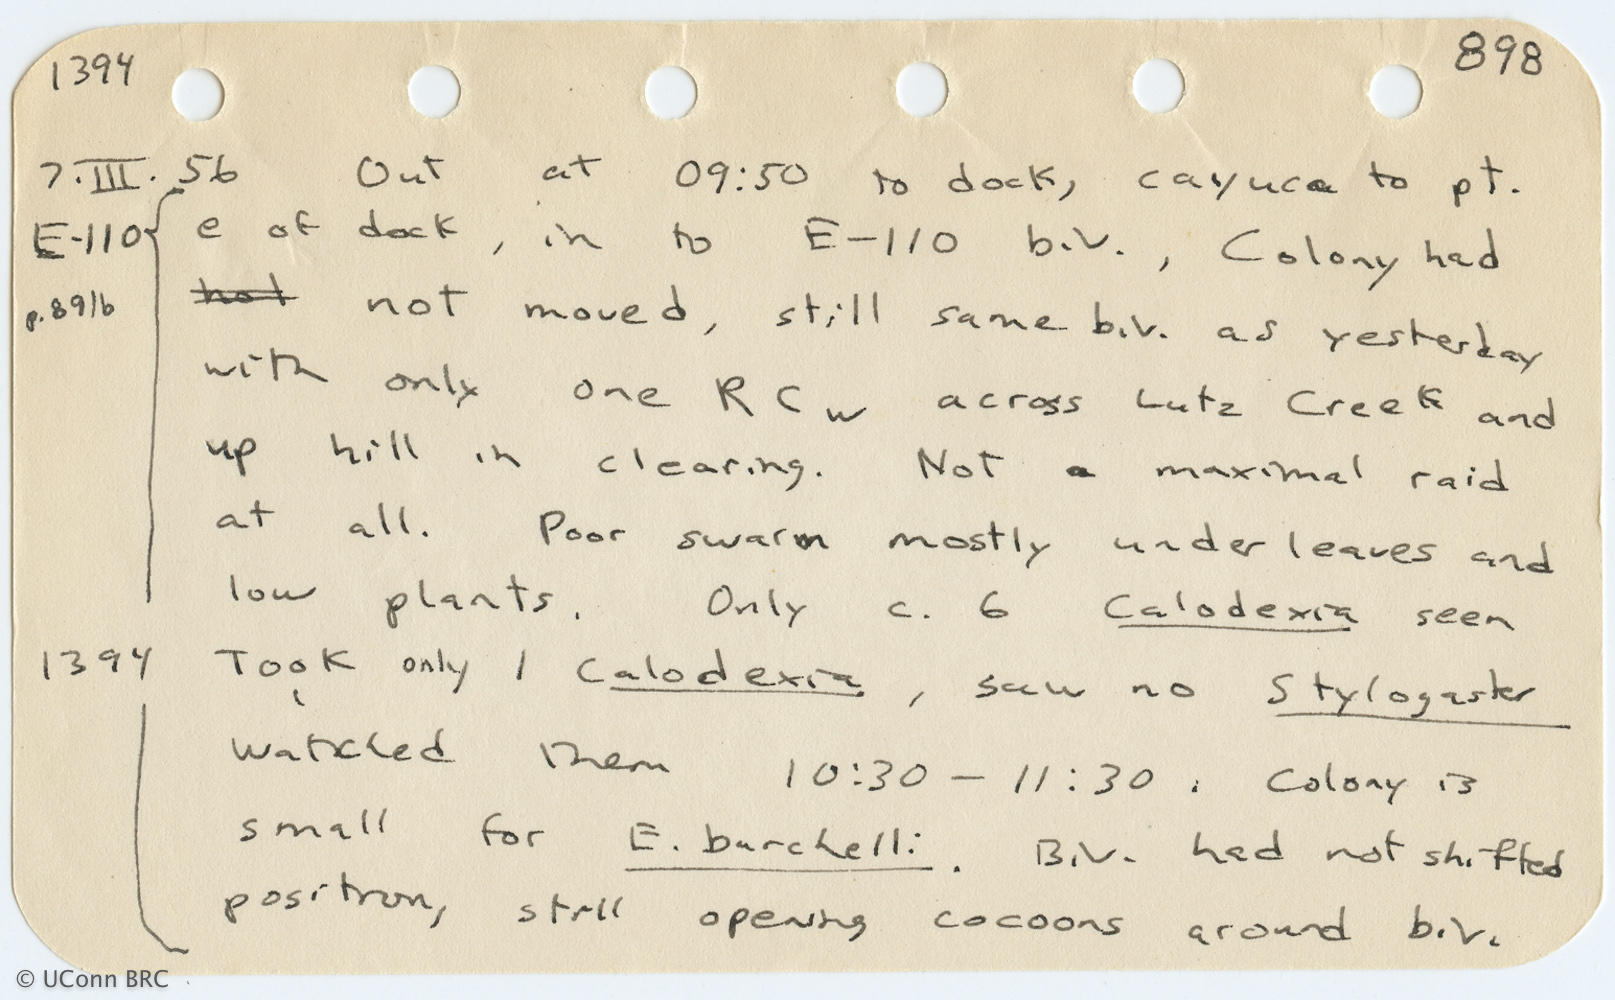 1394 898
7.III.56 Out at 09:50 to dock, cayuca to pt.
E-110 e of dock, in to E-110 b.v., Colony had
p.891b hot not moved, still same b.v. as yesterday
with only one RCw across Lutz Creek and
up hill in clearing. Not a maximal raid
at all. Poor swarm mostly under leaves and
low plants. Only c. 6 Calodexia seen
1394 Took only 1 Calodexia, saw no Stylogaster
watched them 10:30 – 11:30. Colony is
small for E. burchelli. B.V. had not shifted
position, still opening cocoons around b.v.
© UConn BRC